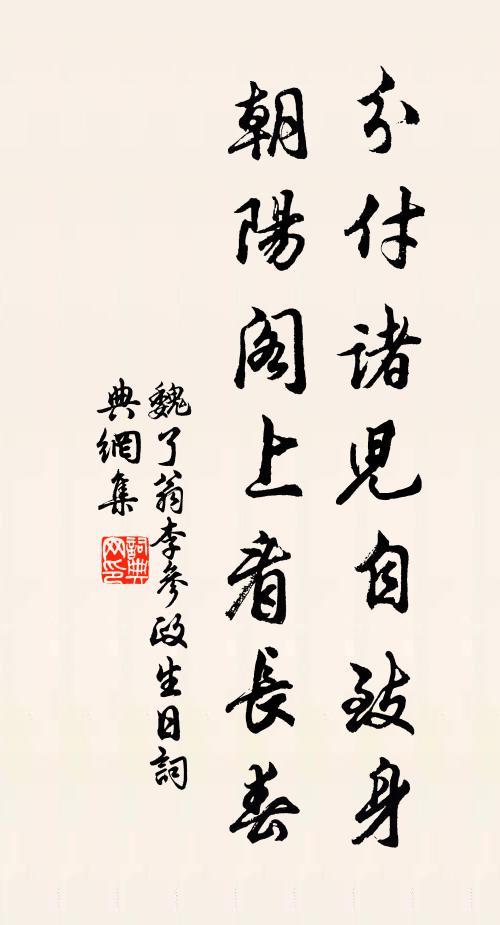 分付諸児自致身
朝陽閣上看長春
魏了翁李參政生日詞
典網集
詞典網印